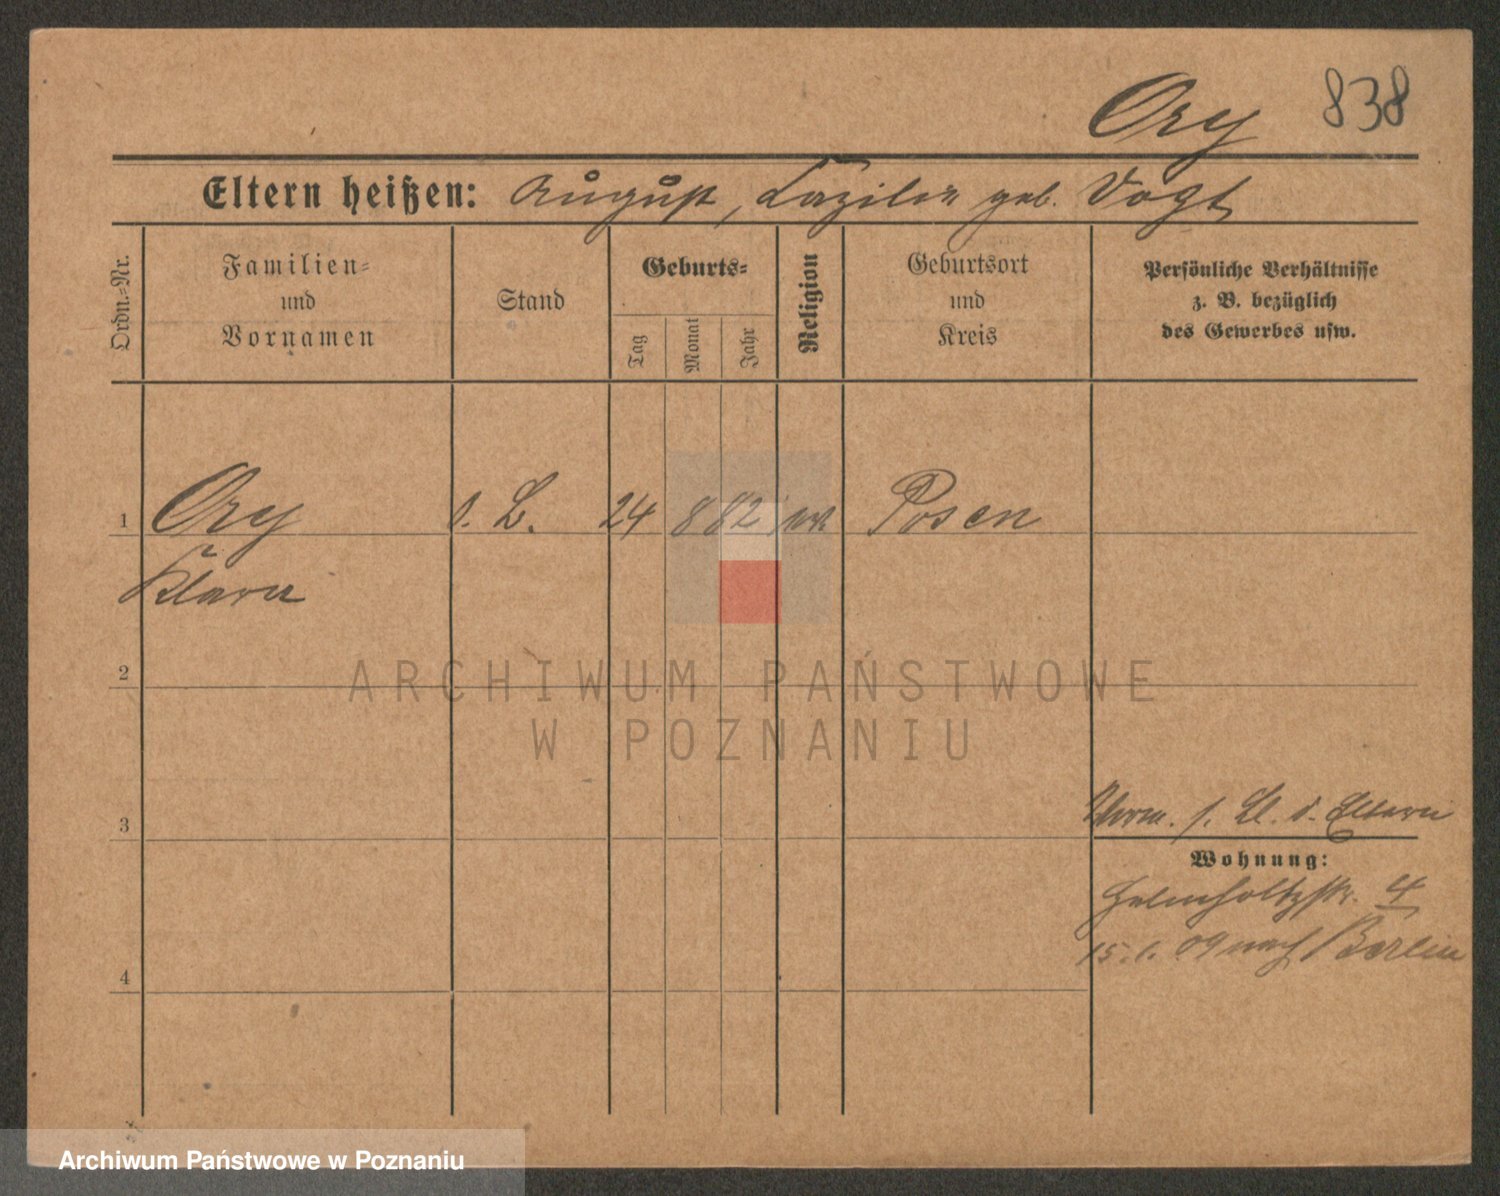 Ory 838
Eltern heißen: August, Cäzilie geb. Vogt
Ordn.=Nr.
Familien=
und
Vornamen
Stand
Geburts=
Tag
Monat
Jahr
Religion
Geburtsort
und
Kreis
Persönliche Verhältnisse
z. B. bezüglich
des Gewerbes usw.
1 Ory 24 8 82 Posen
Klara
2
ARCHIWUM PAŃSTWOWE
W POZNANIU
3
Verm. s. Bl. d. Eltern
Wohnung:
Helmholtzstr. 4
09 nach Berlin
4
Archiwum Państwowe w Poznaniu